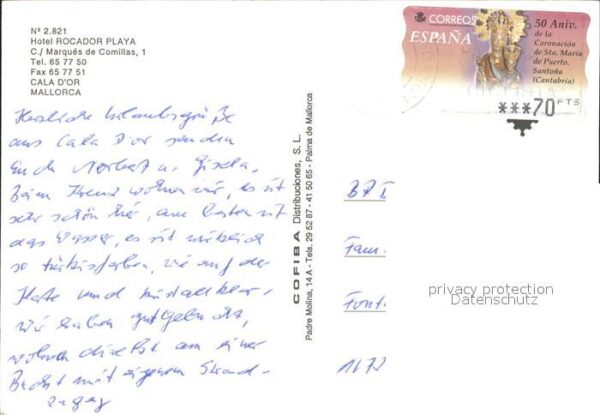 Nº 2.821
Hotel ROCADOR PLAYA
C./ Marqués de Comillas, 1
Tel. 65 77 50
Fax 65 77 51
CALA D'OR
MALLORCA
CORREOS
ESPAÑA
50 Aniv.
de la
Coronación
de Sta. María
de Puerto.
Santoña
(Cantabria)
***70 PTS
Herzliche Urlaubsgrüße
aus Cala D'or senden
Euch Norbert u. Gisela.
Beim Kreuz wohnen wir, es ist
sehr schön hier, am besten ist
das Wasser, es ist wirklich
so türkisfarben, wie auf der
Karte und kristallklar.
Wir haben gut gebucht,
wohnen direkt an einer
Bucht mit eigenem Strand-
zugang
COFIBA Distribuciones, S. L.
Padre Molina, 14 A - Tels. 29 52 87 - 41 50 65 - Palma de Mallorca
Fam.
Font
1672
privacy protection
Datenschutz